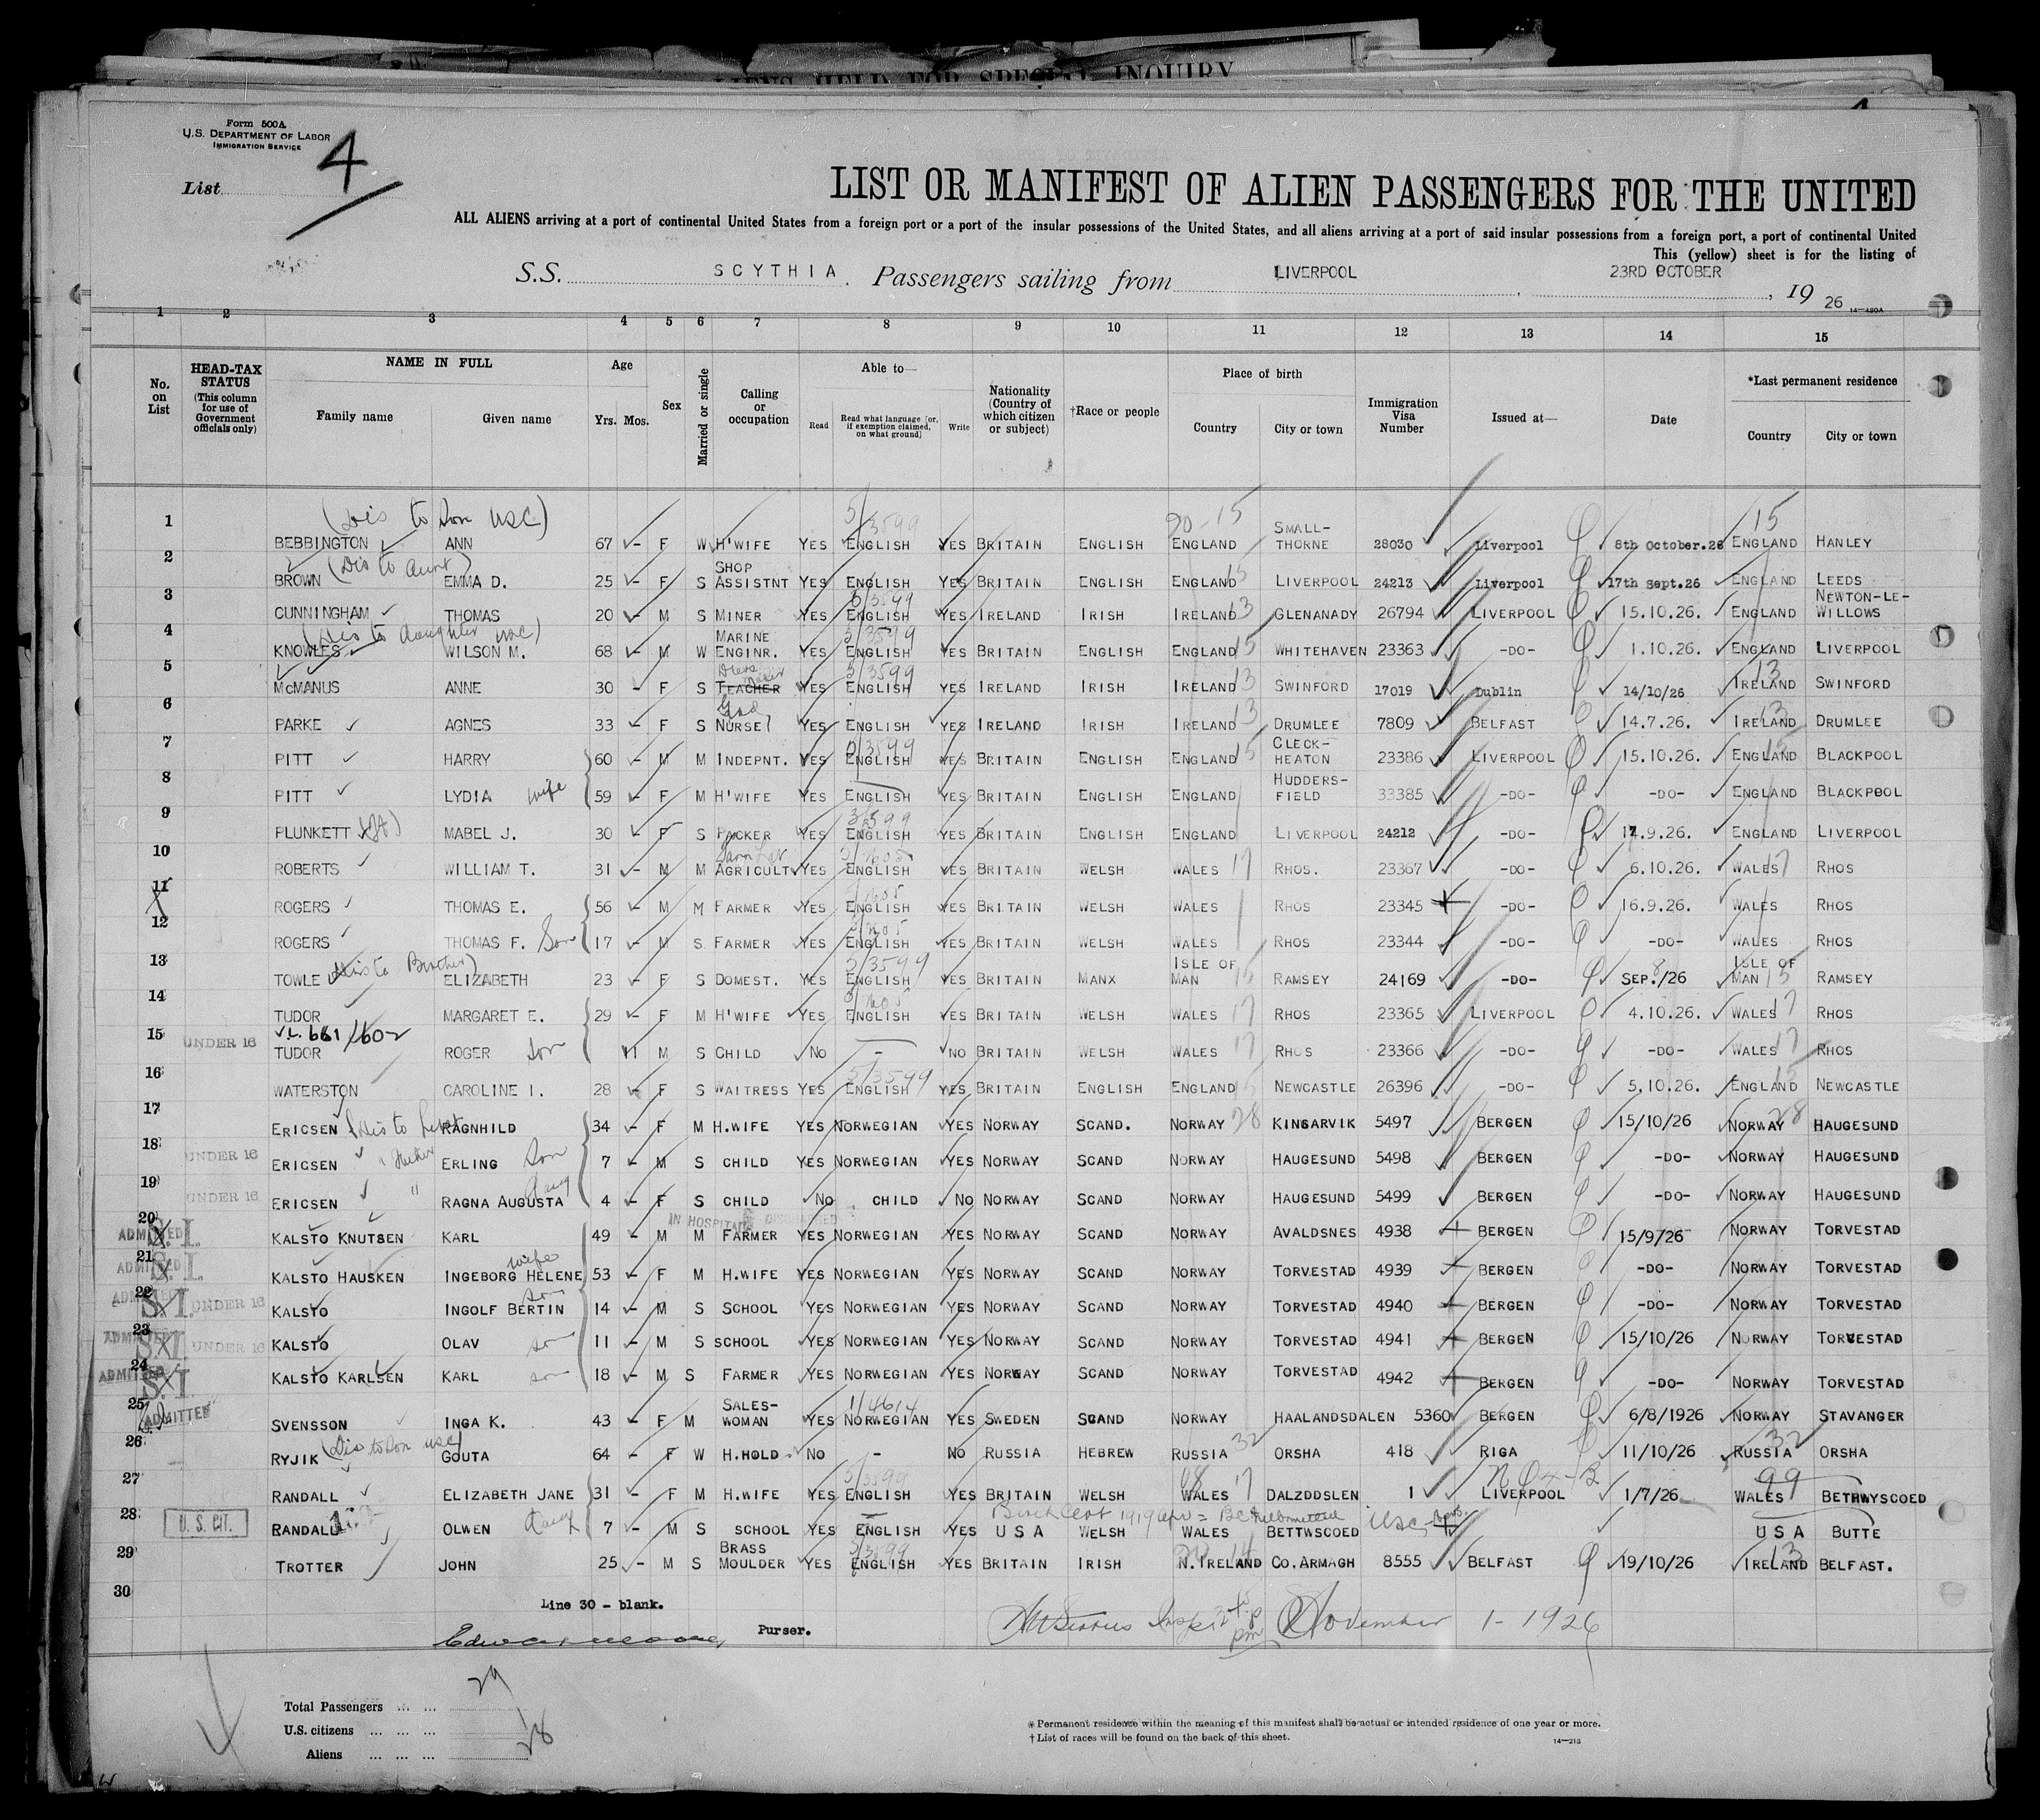 LIENS HELD FOR SPECIAL INQUIRY
Form 500A
U.S. DEPARTMENT OF LABOR
IMMIGRATION SERVICE
List 4
LIST OR MANIFEST OF ALIEN PASSENGERS FOR THE UNITED
ALL ALIENS arriving at a port of continental United States from a foreign port or a port of the insular possessions of the United States, and all aliens arriving at a port of said insular possessions from a foreign port, a port of continental United
This (yellow) sheet is for the listing of
S.S. SCYTHIA. Passengers sailing from LIVERPOOL, 23RD OCTOBER, 19 26
14—480A
1 2 3 4 5 6 7 8 9 10 11 12 13 14 15
No. on List
HEAD-TAX STATUS (This column for use of Government officials only)
NAME IN FULL
Family name Given name
Age
Yrs. Mos.
Sex
Married or single
Calling or occupation
Able to—
Read
Read what language [or, if exemption claimed, on what ground]
Write
Nationality (Country of which citizen or subject)
†Race or people
Place of birth
Country City or town
Immigration Visa Number
Issued at—
Date
*Last permanent residence
Country City or town
(Dis to Son USC)
1 BEBBINGTON ANN 67 - F W H'WIFE YES ENGLISH YES BRITAIN ENGLISH ENGLAND SMALL-THORNE 28030 Liverpool 8th October.26 ENGLAND HANLEY
(Dis to Aunt)
2 BROWN EMMA D. 25 - F S SHOP ASSISTNT YES ENGLISH YES BRITAIN ENGLISH ENGLAND LIVERPOOL 24213 Liverpool 17th Sept.26 ENGLAND LEEDS
3 CUNNINGHAM THOMAS 20 - M S MINER YES ENGLISH YES IRELAND IRISH IRELAND GLENANADY 26794 LIVERPOOL 15.10.26. ENGLAND NEWTON-LE-WILLOWS
(Dis to daughter USC)
4 KNOWLES WILSON M. 68 - M W MARINE ENGINR. YES ENGLISH YES BRITAIN ENGLISH ENGLAND WHITEHAVEN 23363 -DO- 1.10.26. ENGLAND LIVERPOOL
5 McMANUS ANNE 30 - F S TEACHER Dress maker YES ENGLISH YES IRELAND IRISH IRELAND SWINFORD 17019 Dublin 14/10/26 IRELAND SWINFORD
6 PARKE AGNES 33 - F S NURSE YES ENGLISH YES IRELAND IRISH IRELAND DRUMLEE 7809 BELFAST 14.7.26. IRELAND DRUMLEE
7 PITT HARRY 60 - M M INDEPNT. YES ENGLISH YES BRITAIN ENGLISH ENGLAND CLECK-HEATON 23386 LIVERPOOL 15.10.26. ENGLAND BLACKPOOL
8 PITT LYDIA wife 59 - F M H'WIFE YES ENGLISH YES BRITAIN ENGLISH ENGLAND HUDDERS-FIELD 33385 -DO- -DO- ENGLAND BLACKPOOL
9 PLUNKETT MABEL J. 30 - F S PACKER YES ENGLISH YES BRITAIN ENGLISH ENGLAND LIVERPOOL 24212 -DO- 17.9.26. ENGLAND LIVERPOOL
10 ROBERTS WILLIAM T. 31 - M M AGRICULT YES ENGLISH YES BRITAIN WELSH WALES 17 RHOS. 23367 -DO- 6.10.26. WALES 17 RHOS
11 ROGERS THOMAS E. 56 - M M FARMER YES ENGLISH YES BRITAIN WELSH WALES RHOS 23345 -DO- 16.9.26. WALES RHOS
12 ROGERS THOMAS F. Son 17 - M S. FARMER YES ENGLISH YES BRITAIN WELSH WALES RHOS 23344 -DO- -DO- WALES RHOS
13 TOWLE (Dis to Brother) ELIZABETH 23 - F S DOMEST. YES ENGLISH YES BRITAIN MANX ISLE OF MAN 15 RAMSEY 24169 -DO- SEP. 8/26 ISLE OF MAN 15 RAMSEY
14 TUDOR MARGARET E. 29 - F M H'WIFE YES ENGLISH YES BRITAIN WELSH WALES 17 RHOS 23365 LIVERPOOL 4.10.26. WALES 17 RHOS
V.L. 661/602
15 UNDER 16 TUDOR ROGER Son 11 M S CHILD NO - NO BRITAIN WELSH WALES 17 RHOS 23366 -DO- -DO- WALES 17 RHOS
16 WATERSTON CAROLINE I. 28 - F S WAITRESS YES ENGLISH YES BRITAIN ENGLISH ENGLAND 15 NEWCASTLE 26396 -DO- 5.10.26. ENGLAND 15 NEWCASTLE
17 ERICSEN RAGNHILD 34 - F M H.WIFE YES NORWEGIAN YES NORWAY SCAND. NORWAY 28 KINSARVIK 5497 BERGEN 15/10/26 NORWAY 28 HAUGESUND
18 UNDER 16 ERICSEN ERLING Son 7 - M S CHILD YES NORWEGIAN YES NORWAY SCAND NORWAY HAUGESUND 5498 BERGEN -DO- NORWAY HAUGESUND
19 UNDER 16 ERICSEN " RAGNA AUGUSTA daug 4 - F S CHILD NO CHILD NO NORWAY SCAND NORWAY HAUGESUND 5499 BERGEN -DO- NORWAY HAUGESUND
IN HOSPITAL DISCHARGED
20 ADMITTED S.I. KALSTO KNUTSEN KARL 49 - M M FARMER YES NORWEGIAN YES NORWAY SCAND NORWAY AVALDSNES 4938 BERGEN 15/9/26 NORWAY TORVESTAD
21 ADMITTED S.I. KALSTO HAUSKEN INGEBORG HELENE wife 53 - F M H.WIFE YES NORWEGIAN YES NORWAY SCAND NORWAY TORVESTAD 4939 BERGEN -DO- NORWAY TORVESTAD
22 ADMITTED S.I. UNDER 16 KALSTO INGOLF BERTIN son 14 - M S SCHOOL YES NORWEGIAN YES NORWAY SCAND NORWAY TORVESTAD 4940 BERGEN -DO- NORWAY TORVESTAD
23 ADMITTED S.I. UNDER 16 KALSTO OLAV son 11 - M S SCHOOL YES NORWEGIAN YES NORWAY SCAND NORWAY TORVESTAD 4941 BERGEN 15/10/26 NORWAY TORVESTAD
24 ADMITTED S.I. KALSTO KARLSEN KARL son 18 - M S FARMER YES NORWEGIAN YES NORWAY SCAND NORWAY TORVESTAD 4942 BERGEN -DO- NORWAY TORVESTAD
25 ADMITTED SVENSSON INGA K. 43 - F M SALES-WOMAN YES NORWEGIAN YES SWEDEN SCAND NORWAY HAALANDSDALEN 5360 BERGEN 6/8/1926 NORWAY STAVANGER
26 RYJIK (Dis to Son USC) GOUTA 64 - F W H.HOLD NO - NO RUSSIA HEBREW RUSSIA 32 ORSHA 418 RIGA 11/10/26 RUSSIA 32 ORSHA
27 RANDALL ELIZABETH JANE 31 - F M H.WIFE YES ENGLISH YES BRITAIN WELSH WALES 17 DALZDDSLEN 1 LIVERPOOL 1/7/26 WALES 99 BETHWYSCOED
28 U. S. CIT. RANDALL OLWEN daug 7 - M S SCHOOL YES ENGLISH YES U S A WELSH WALES BETTWSCOED USC U S A BUTTE
29 TROTTER JOHN 25 - M S BRASS MOULDER YES ENGLISH YES BRITAIN IRISH N. IRELAND CO. ARMAGH 8555 BELFAST 19/10/26 IRELAND 13 BELFAST.
30
Line 30 - blank.
Purser.
November 1 - 1926
Total Passengers 29
U.S. citizens 1
Aliens 28
* Permanent residence within the meaning of this manifest shall be actual or intended residence of one year or more.
† List of races will be found on the back of this sheet.
14—213